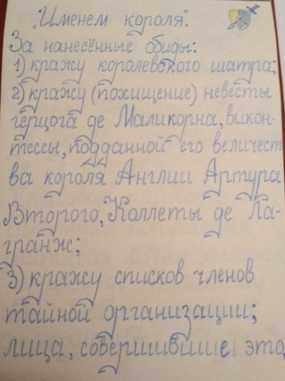 "Именем короля".
За нанесённые обиды:
1) кражу королевского шатра;
2) кражу (похищение) невесты
герцога де Маликорна, викон-
тессы, подданной его величест
ва короля Англии Артура
Второго, Коллеты де Ла-
гранж;
3) кражу списков членов
тайной организации;
лица, совершившие это,